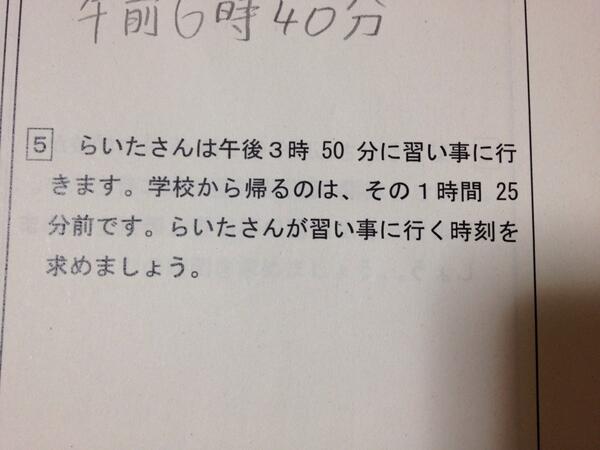 午前6時40分
5 らいたさんは午後3時 50 分に習い事に行
きます。学校から帰るのは、その1時間 25
分前です。らいたさんが習い事に行く時刻を
求めましょう。